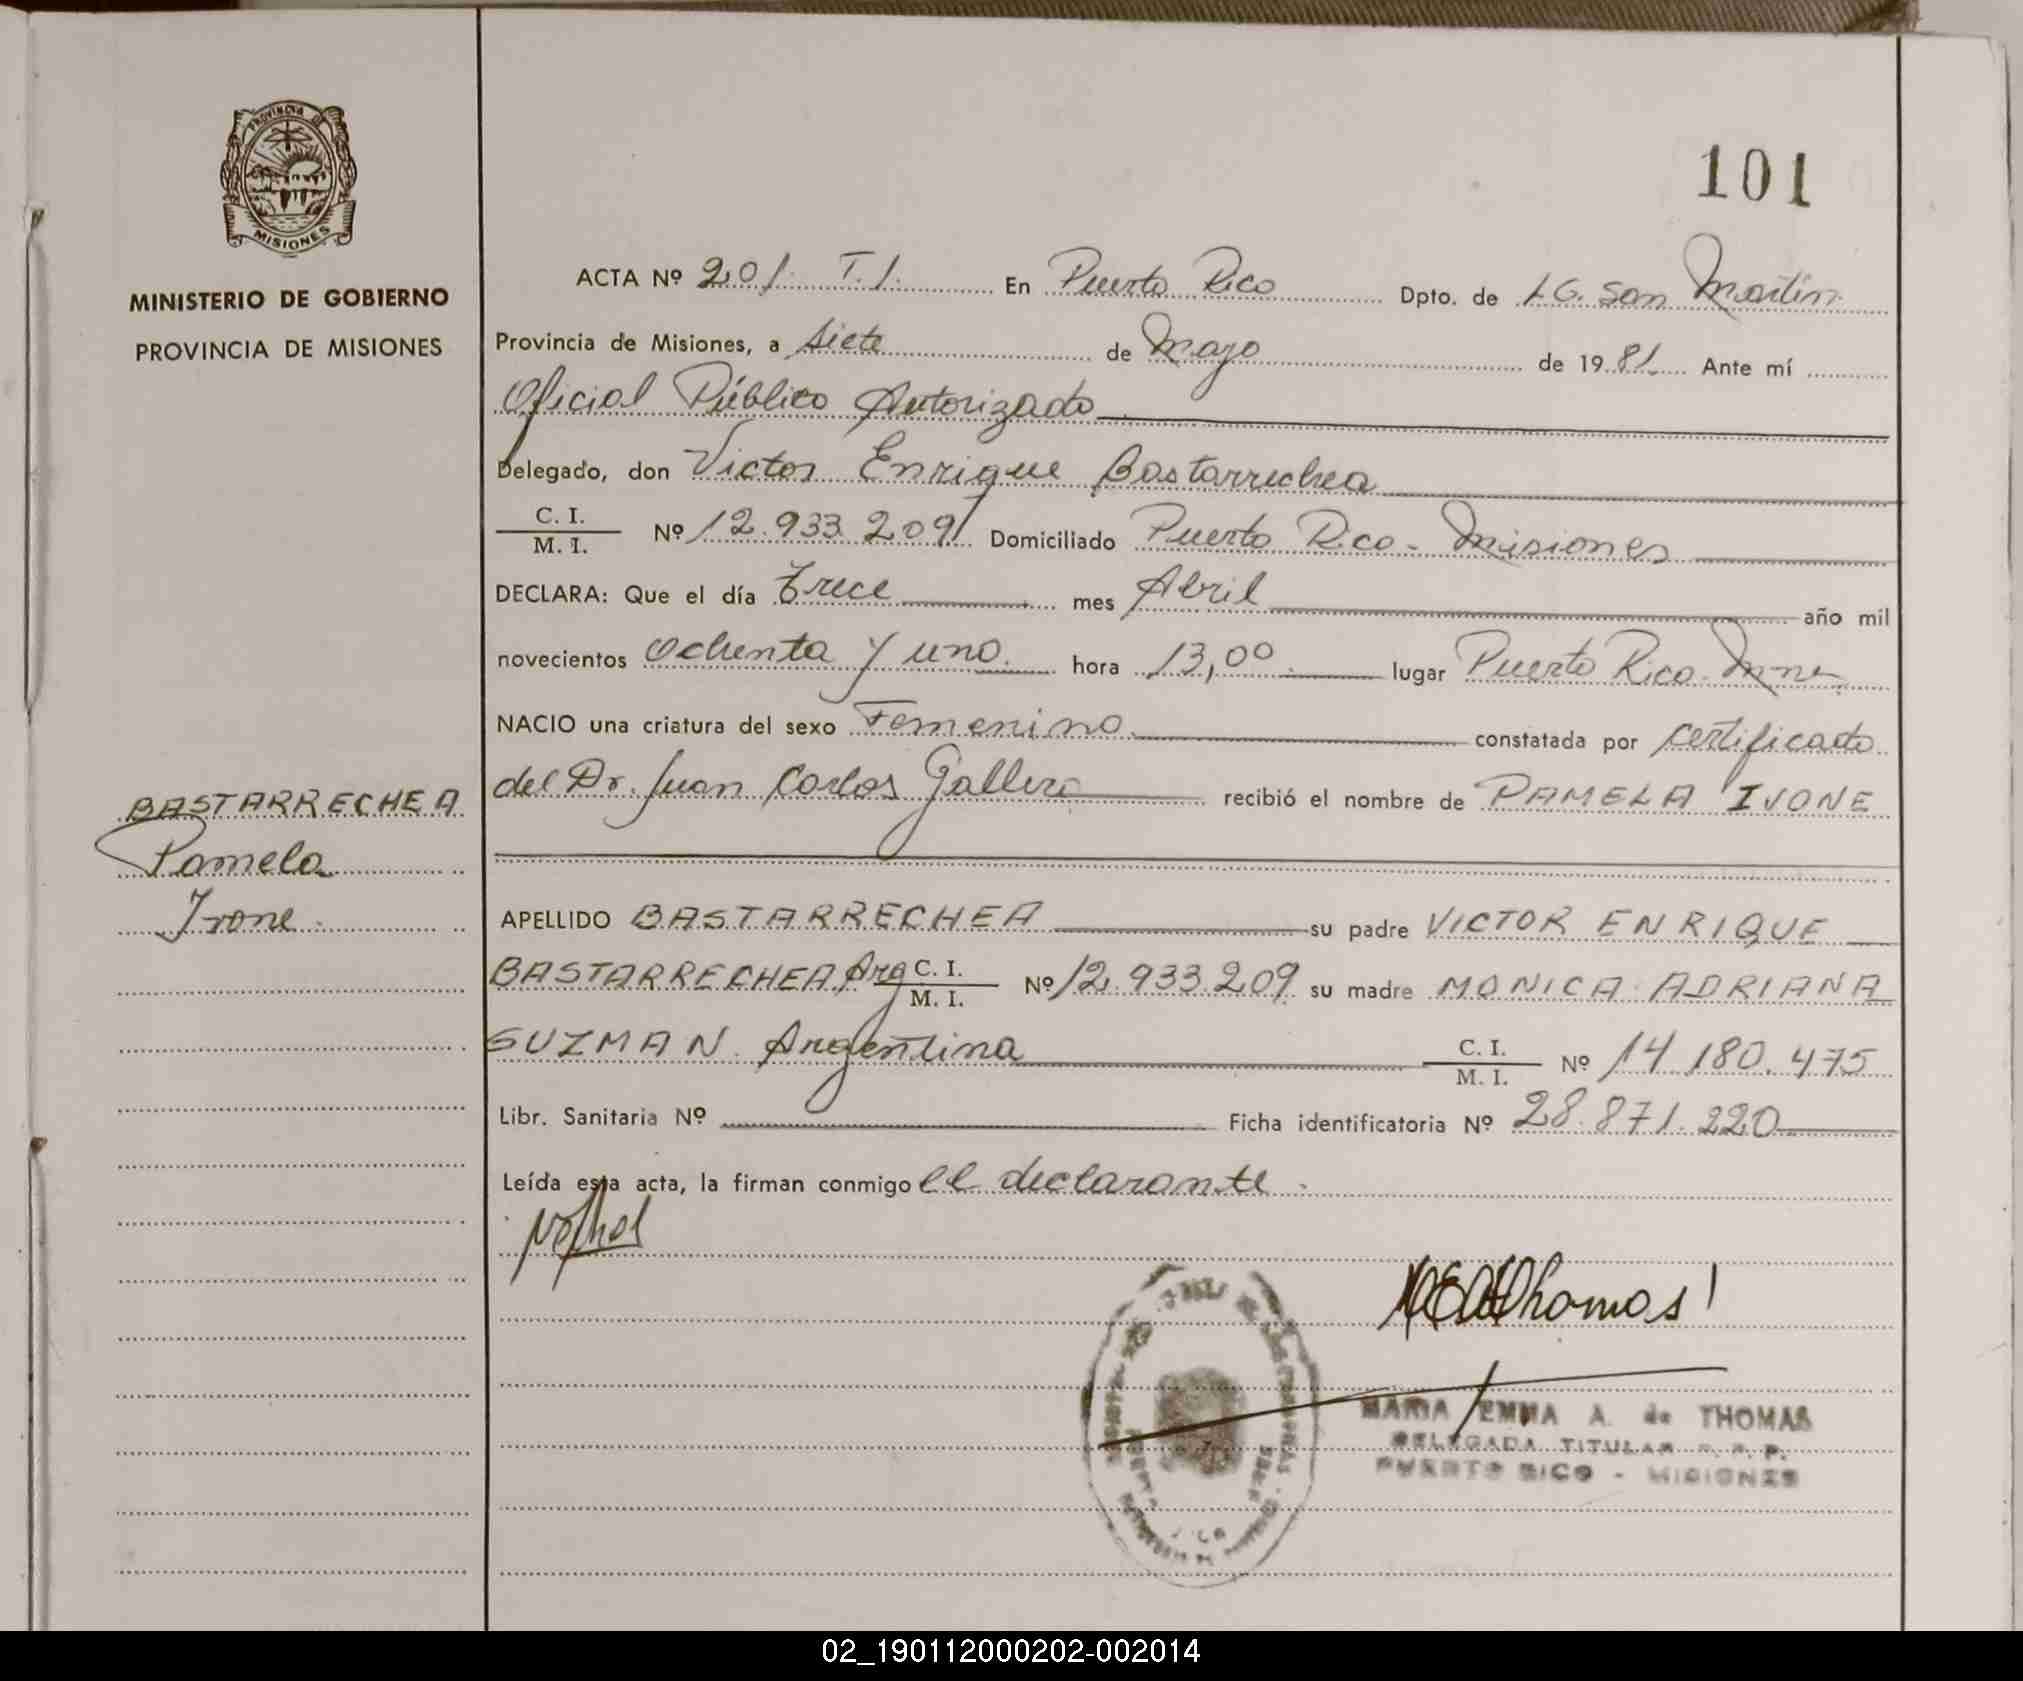 PROVINCIA DE
MISIONES
MINISTERIO DE GOBIERNO
PROVINCIA DE MISIONES
BASTARRECHEA
Pamela
Ivone
101
ACTA Nº 201. T.1. En Puerto Rico Dpto. de L.G. San Martín
Provincia de Misiones, a siete de Mayo de 1981. Ante mí
Oficial Público Autorizado
Delegado, don Victor Enrique Bastarrechea
C. I.
M. I. Nº 12.933.209 Domiciliado Puerto Rico - Misiones
DECLARA: Que el día Trece mes Abril año mil
novecientos Ochenta y uno. hora 13,00 lugar Puerto Rico. Mnes
NACIO una criatura del sexo Femenino constatada por certificado
del Dr. Juan Carlos recibió el nombre de PAMELA IVONE
APELLIDO BASTARRECHEA su padre VICTOR ENRIQUE
BASTARRECHEA Arg C. I.
M. I. Nº 12.933.209 su madre MONICA ADRIANA
GUZMAN. Argentina C. I.
M. I. Nº 14.180.475
Libr. Sanitaria Nº Ficha identificatoria Nº 28.871.220
Leída esta acta, la firman conmigo el declarante.
MEAdThomas
MARIA EMMA A. de THOMAS
DELEGADA TITULAR R. P. P.
PUERTO RICO - MISIONES
02_190112000202-002014